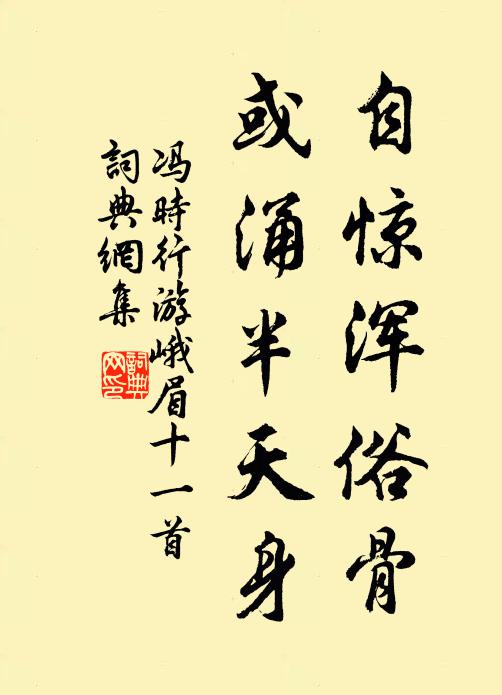 自惊浑俗骨
或涌半天身
冯時行游峨眉十一首
詞典網集
詞典
网印